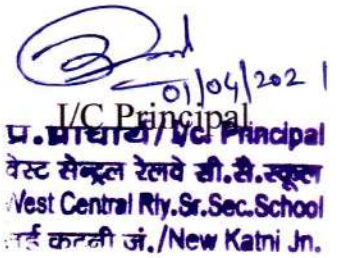 01/04/2021
I/C Principal
प्र.प्राचार्य/I/c. Principal
वेस्ट सेन्ट्रल रेलवे सी.सै.स्कूल
West Central Rly.Sr.Sec.School
नई कटनी जं./New Katni Jn.